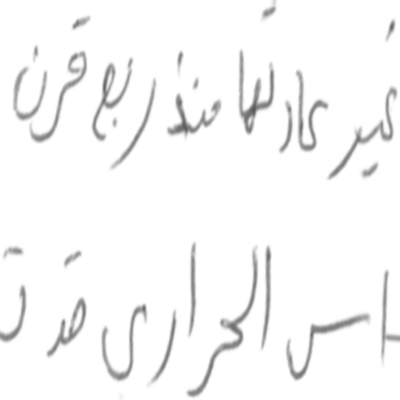 غير عادتها منذ ربع قرن
اس الحرارى قد